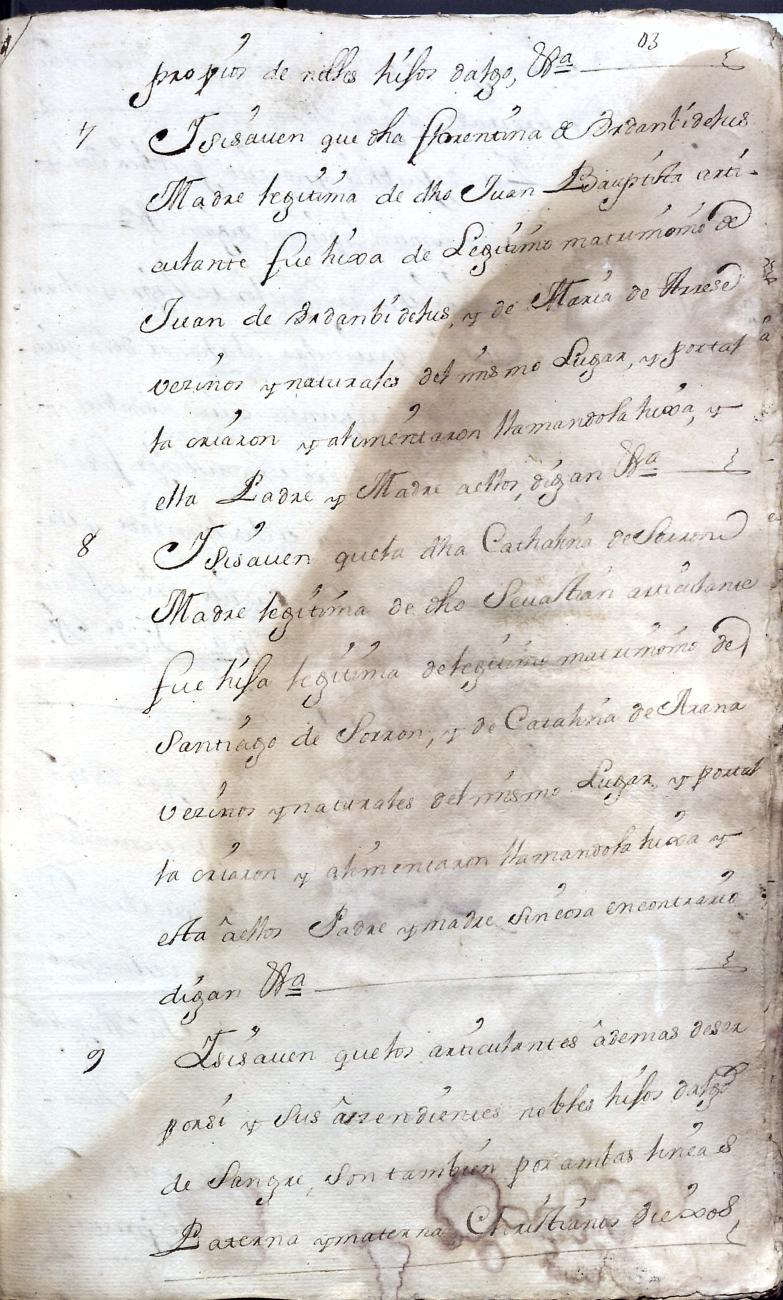 03
propios de nobles hijos dalgo, &a
7 Isisauen que dha florentina de Brdanbidelus
Madre legitima de dho Juan Bauptista arti-
culante fue hixa de Legitimo matrimonio de
Juan de Brdanbidelus, y de Maria de Arrese
vezinos y naturales del mismo Lugar, y portal
la criaron y alimentaron llamandola hixa, y
ella Padre y Madre aellos, digan &a
8 Isisauen quela dha Cathalina de Sorron
Madre legitima de dho Seuastian articulante
fue hija legitima delegitimo matrimonio de
Santiago de Sorron, y de Catalina de Arana
vezinos y naturales del mismo Lugar, y portal
la criaron y alimentaron llamandola hixa y
esta âellos Padre y madre sincosa encontrario
digan &a
9 Isisauen quelos articulantes âdemas deser
porsi y sus âzendientes nobles hijos dalgo
de Sangre, son tambien por ambas lineas
Paterna y materna Christianos viexos